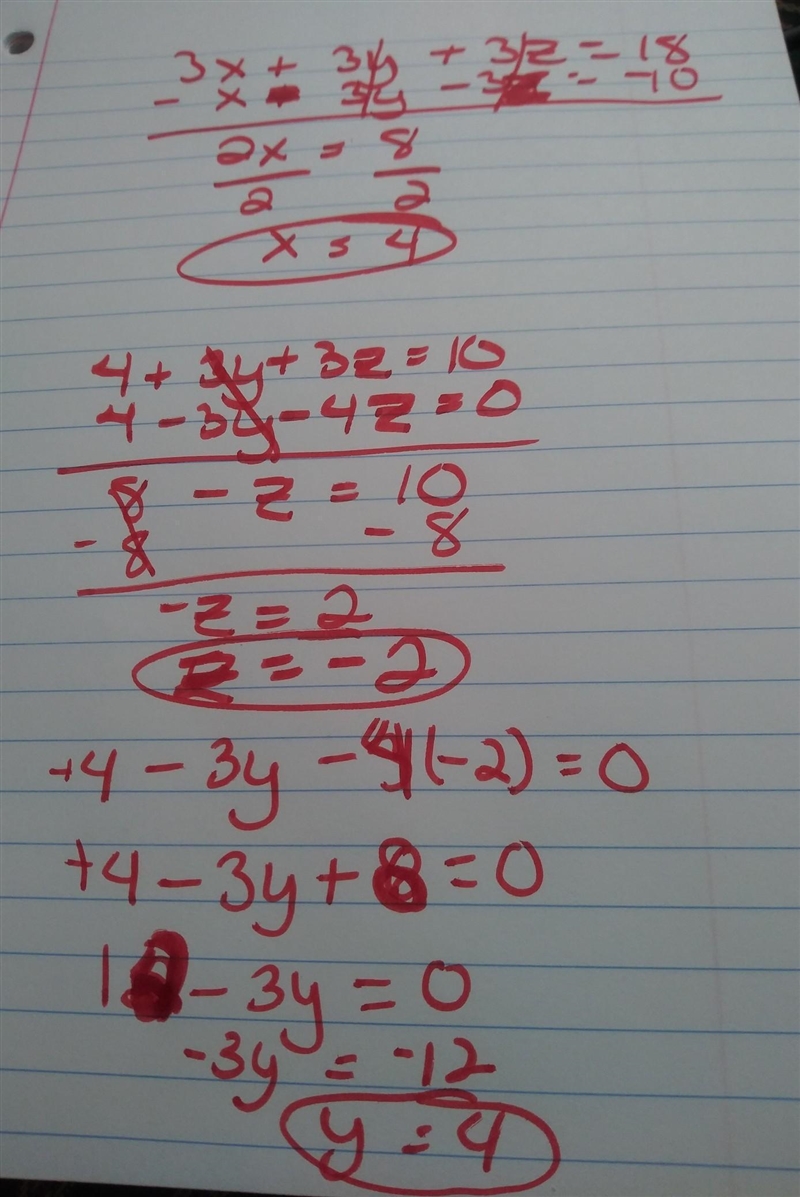 3x + 3y + 3z = 18
- x - 3y - 3z = -10
2x = 8
2 2
x = 4
4 + 3y + 3z = 10
4 - 3y - 4z = 0
8 - z = 10
- 8 - 8
-z = 2
z = -2
+4 - 3y - 4(-2) = 0
+4 - 3y + 8 = 0
1 - 3y = 0
-3y = -12
y = 4